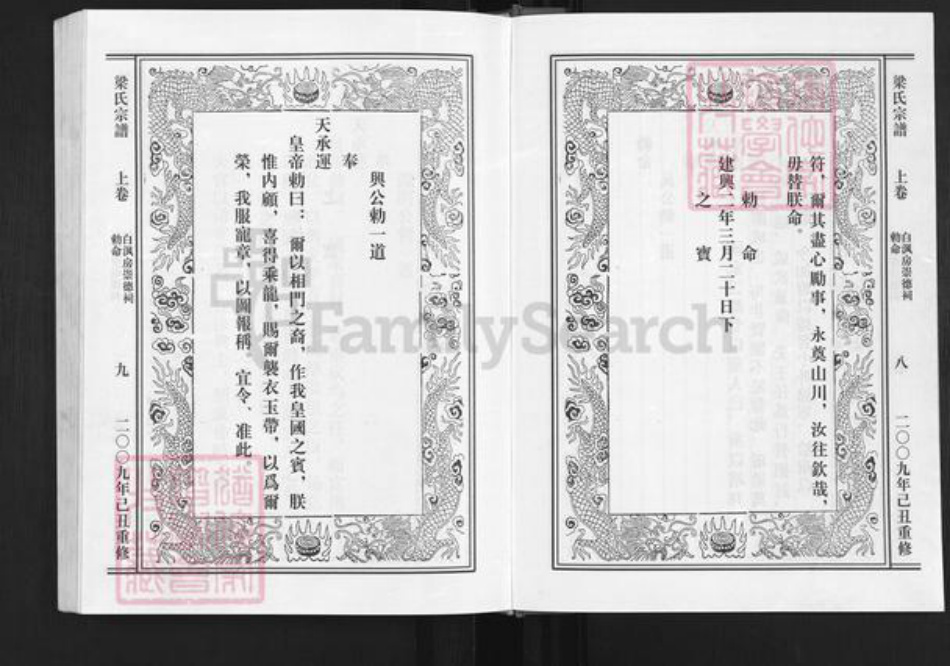 梁氏宗譜
上卷
白渢房崇德祠
勅命
八
二〇〇九年己丑重修
符，爾其盡心勵事，永奠山川，汝往欽哉，
毋替朕命。
勅命
建興二年三月二十日下
之寶
興公勅一道
奉
天承運
皇帝勅曰：爾以相門之裔，作我皇國之賓，朕
惟內顧，喜得乘龍，賜爾襲衣玉帶，以爲爾
榮，我服寵章，以圖報稱，宜令、准此。
梁氏宗譜
上卷
白渢房崇德祠
勅命
九
二〇〇九年己丑重修
FamilySearch